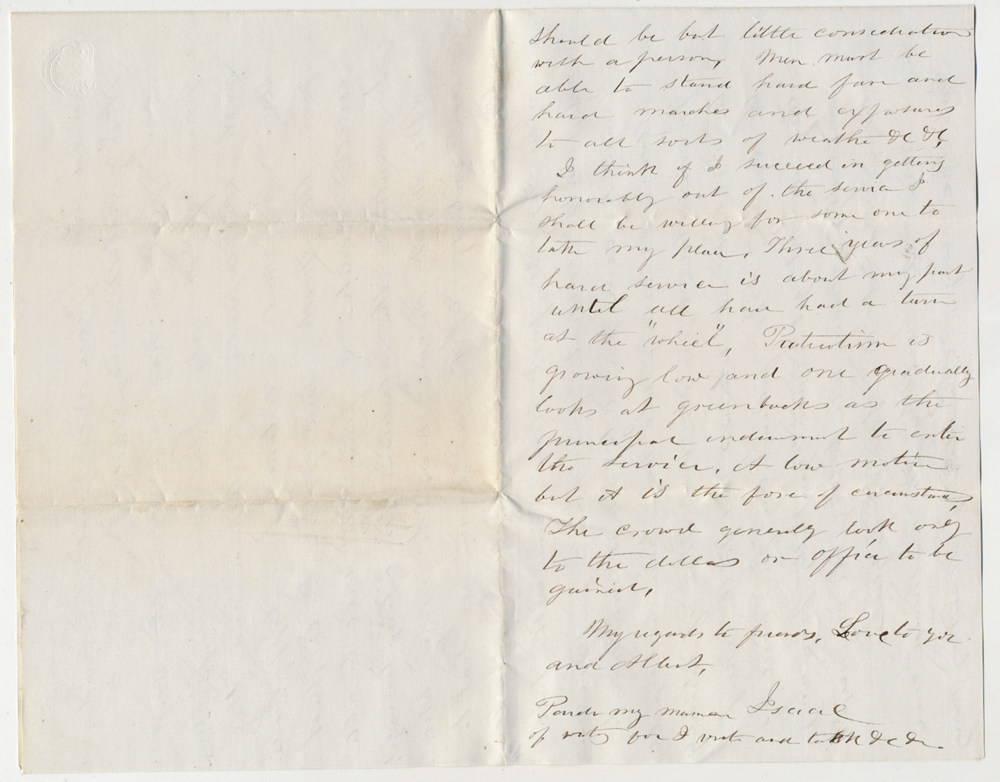 should be but little consideration
with a person, Men must be
able to stand hard fare and
hard marches and exposures
to all sorts of weathe &c &c,
I think if I succeed in getting
honorably out of the service I
shall be willing for some one to
take my place. Three years of
hard service is about my part
until all have had a turn
at the "wheel", Patriotism is
growing low and one gradually
looks at greenbacks as the
principal inducement to enter
the service. A low motive
but it is the force of circumstances
The crowd generally look only
to the dollars or office to be
gained,
My regards to friends, Love to you
and Albert,
Isaac
Pardon my manner
of writing for I write and talk &c &c